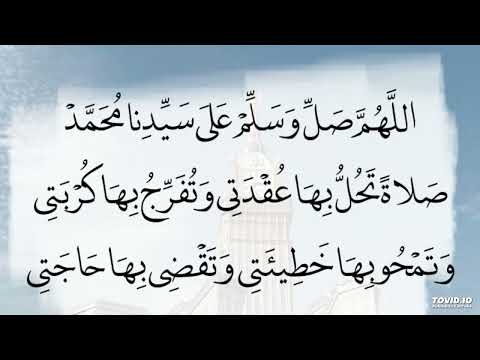 اللَّهُمَّ صَلِّ وَسَلِّمْ عَلَى سَيِّدِنَا مُحَمَّدْ
صَلَاةً تَحُلُّ بِهَا عُقْدَتِى وَتُفَرِّجُ بِهَا كُرْبَتِى
وَتَمْحُو بِهَا خَطِيئَتِى وَتَقْضِى بِهَا حَاجَتِى
TOVID.IO